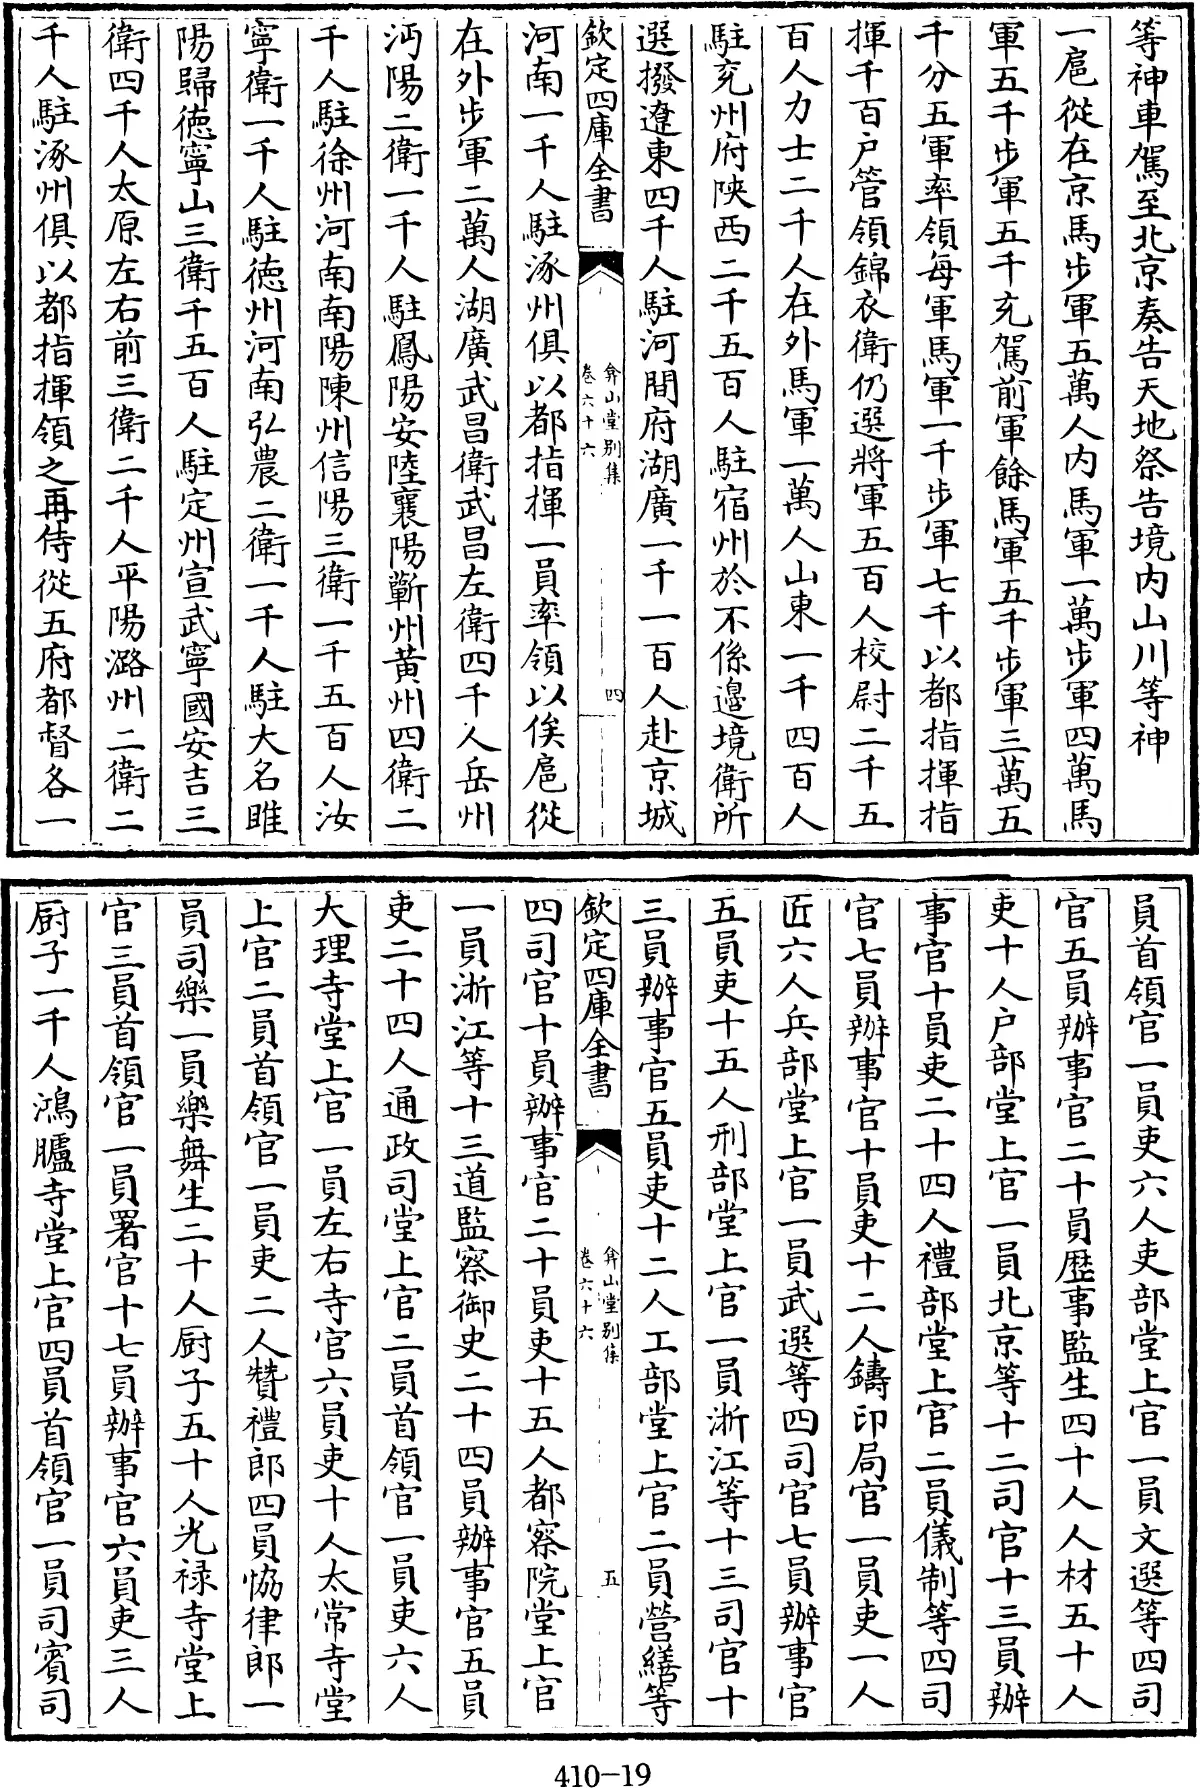 等神車駕至北京奏告天地祭告境内山川等神
一扈從在京馬步軍五萬人内馬軍一萬步軍四萬馬
軍五千步軍五千充駕前軍餘馬軍五千步軍三萬五
千分五軍率領每軍馬軍一千步軍七千以都指揮指
揮千百户管領錦衣衛仍選將軍五百人校尉二千五
百人力士二千人在外馬軍一萬人山東一千四百人
駐兖州府陜西二千五百人駐宿州於不係邊境衛所
選撥遼東四千人駐河間府湖廣一千一百人赴京城
欽定四庫全書
弇山堂别集
卷六十六
四
河南一千人駐涿州俱以都指揮一員率領以俟扈從
在外步軍二萬人湖廣武昌衛武昌左衛四千人岳州
沔陽二衛一千人駐鳳陽安陸襄陽蘄州黄州四衛二
千人駐徐州河南南陽陳州信陽三衛一千五百人汝
寧衛一千人駐徳州河南弘農二衛一千人駐大名睢
陽歸徳寧山三衛千五百人駐定州宣武寧國安吉三
衛四千人太原左右前三衛二千人平陽潞州二衛二
千人駐涿州俱以都指揮領之再侍從五府都督各一
員首領官一員吏六人吏部堂上官一員文選等四司
官五員辦事官二十員歴事監生四十人人材五十人
吏十人户部堂上官一員北京等十二司官十三員辦
事官十員吏二十四人禮部堂上官二員儀制等四司
官七員辦事官十員吏十二人鑄印局官一員吏一人
匠六人兵部堂上官一員武選等四司官七員辦事官
五員吏十五人刑部堂上官一員浙江等十三司官十
三員辦事官五員吏十二人工部堂上官二員營繕等
欽定四庫全書
弇山堂别集
卷六十六
五
四司官十員辦事官二十員吏十五人都察院堂上官
一員浙江等十三道監察御史二十四員辦事官五員
吏二十四人通政司堂上官二員首領官一員吏六人
大理寺堂上官一員左右寺官六員吏十人太常寺堂
上官二員首領官一員吏二人贊禮郎四員協律郎一
員司樂一員樂舞生二十人厨子五十人光禄寺堂上
官三員首領官一員署官十七員辦事官六員吏三人
厨子一千人鴻臚寺堂上官四員首領官一員司賓司
410-19